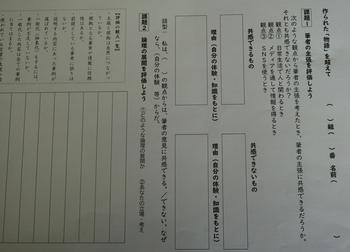 作られた「物語」を超えて
（　）組（　）番 名前（
課題１　筆者の主張を評価しよう
次のような観点から筆者の主張を考えたとき、筆者の主張に共感できるだろうか。
それとも共感できないだろうか？
観点①　日常生活で人と関わるとき
観点②　メディアを通して情報を得るとき
観点③　SNSを使うとき
共感できるもの
共感できないもの
理由（自分の体験・知識をもとに）
理由（自分の体験・知識をもとに）
話型：私は、（　）の観点からは、筆者の意見に共感できる。／できない。なぜ
なら、（自分の体験　等）からだ。
課題２　論理の展開を評価しよう
①どのような論理の展開か　②あなたの立場・考え
【評価の観点一覧】